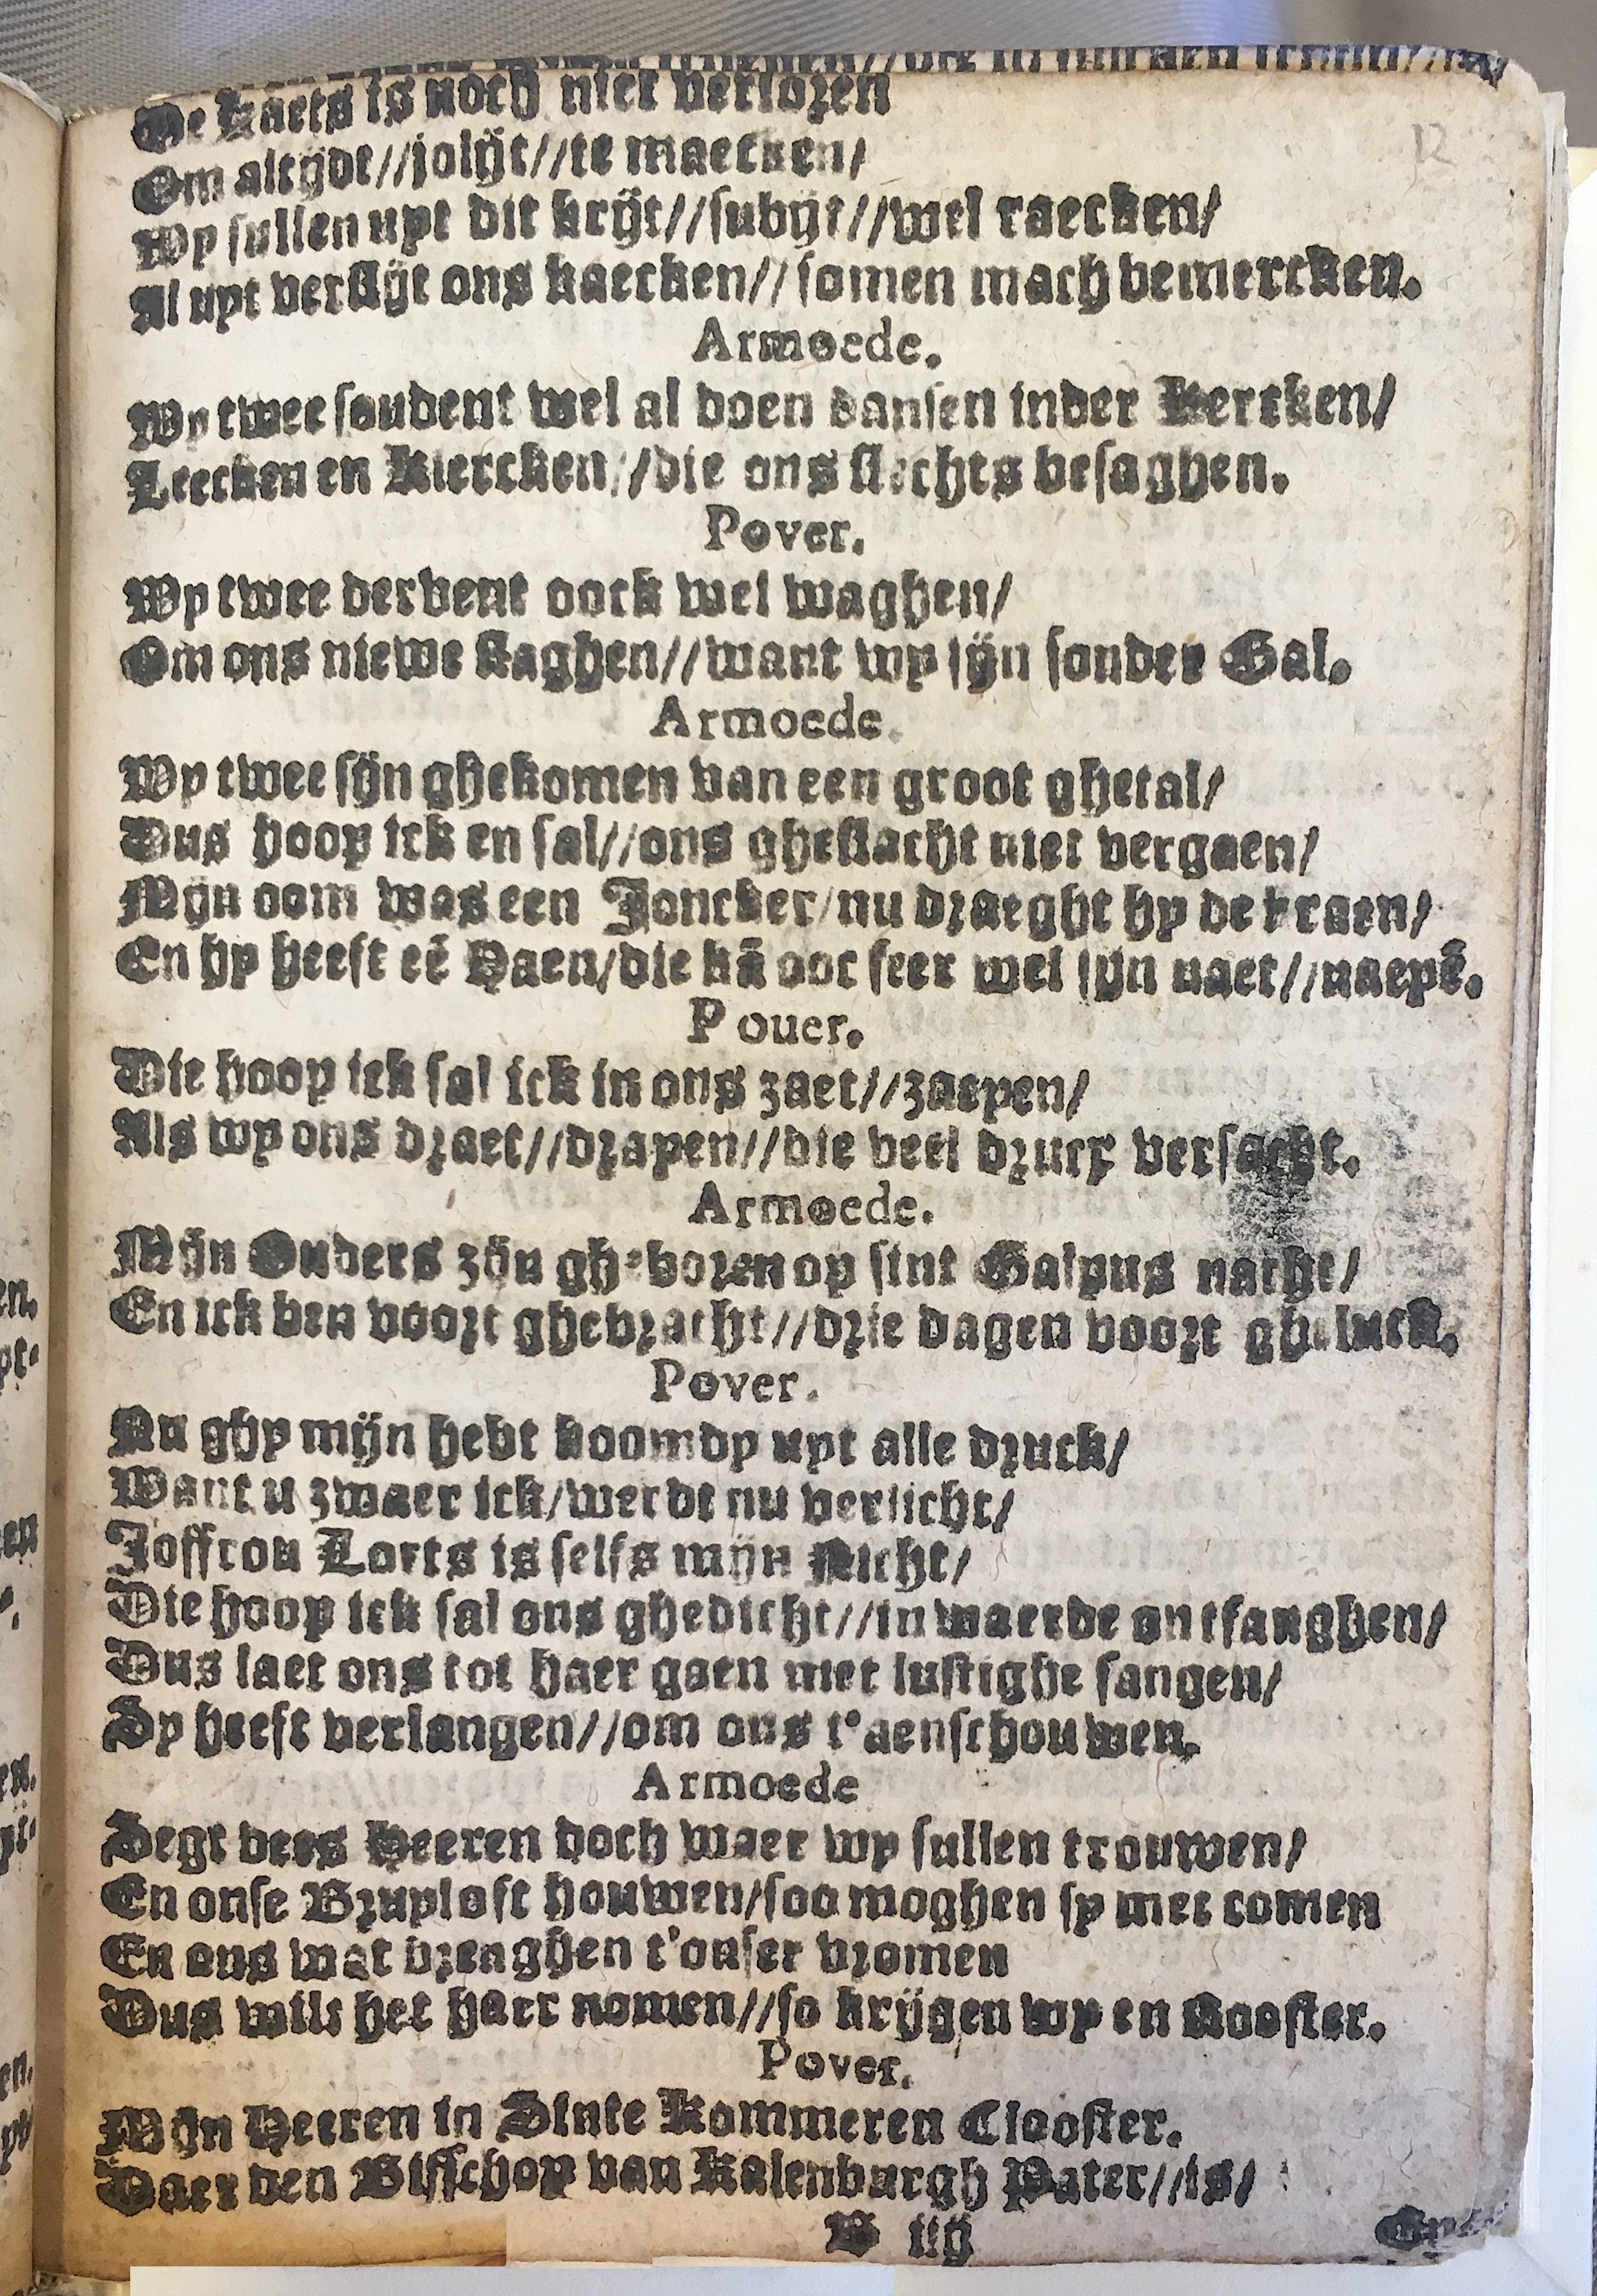 De Kaets is noch niet verlozen
Om altijdt//jolijt//te maecken/
Wy sullen uyt dit krijt//subijt//wel raecken/
Al uyt verslijt ons kaecken//somen mach bemercken.
12
Armoede.
Wy twee soudent wel al doen dansen inder Kercken/
Leecken en Klercken//die ons slechts besaghen.
Pover.
Wy twee dervent oock wel waghen/
Om ons niewe slaghen//want wy sijn sonder Gal.
Armoede.
Wy twee sijn ghekomen van een groot ghetal/
Dus hoop ick en sal//ons gheslacht niet vergaen/
Mijn oom was een Joncker/nu draeght hy de kraen/
En hy heeft eē Haen/die kā ooc seer wel sijn naet//naepē.
Pouer.
Die hoop ick sal ick in ons zaet//zaepen/
Als wy ons draet//drapen//die veel druck versacht.
Armoede.
Mijn Ouders zijn gheboren op sint Galpus nacht/
En ick ben voort ghebracht//drie dagen voort gheluck.
Pover.
Nu ghy mijn hebt koomdy uyt alle druck/
Want u zwaer ick/werdt nu verlicht/
Joffrou Lorts is selfs mijn Nicht/
Die hoop ick sal ons ghedicht//in waerde ontfanghen/
Dus laet ons tot haer gaen met lustighe sangen/
Sy heeft verlangen//om ons t'aenschouwen.
Armoede
Segt dees Heeren doch waer wy sullen trouwen/
En onse Bruyloft houwen/soo moghen sy met comen
En ons wat brenghen t'onser vromen
Dus wilt het haer nomen//so krijgen wy en Rooster.
Pover.
Mijn Heeren in Sinte Kommeren Clooster.
Daer den Bisschop van Kalenburgh Pater//is/
B iij